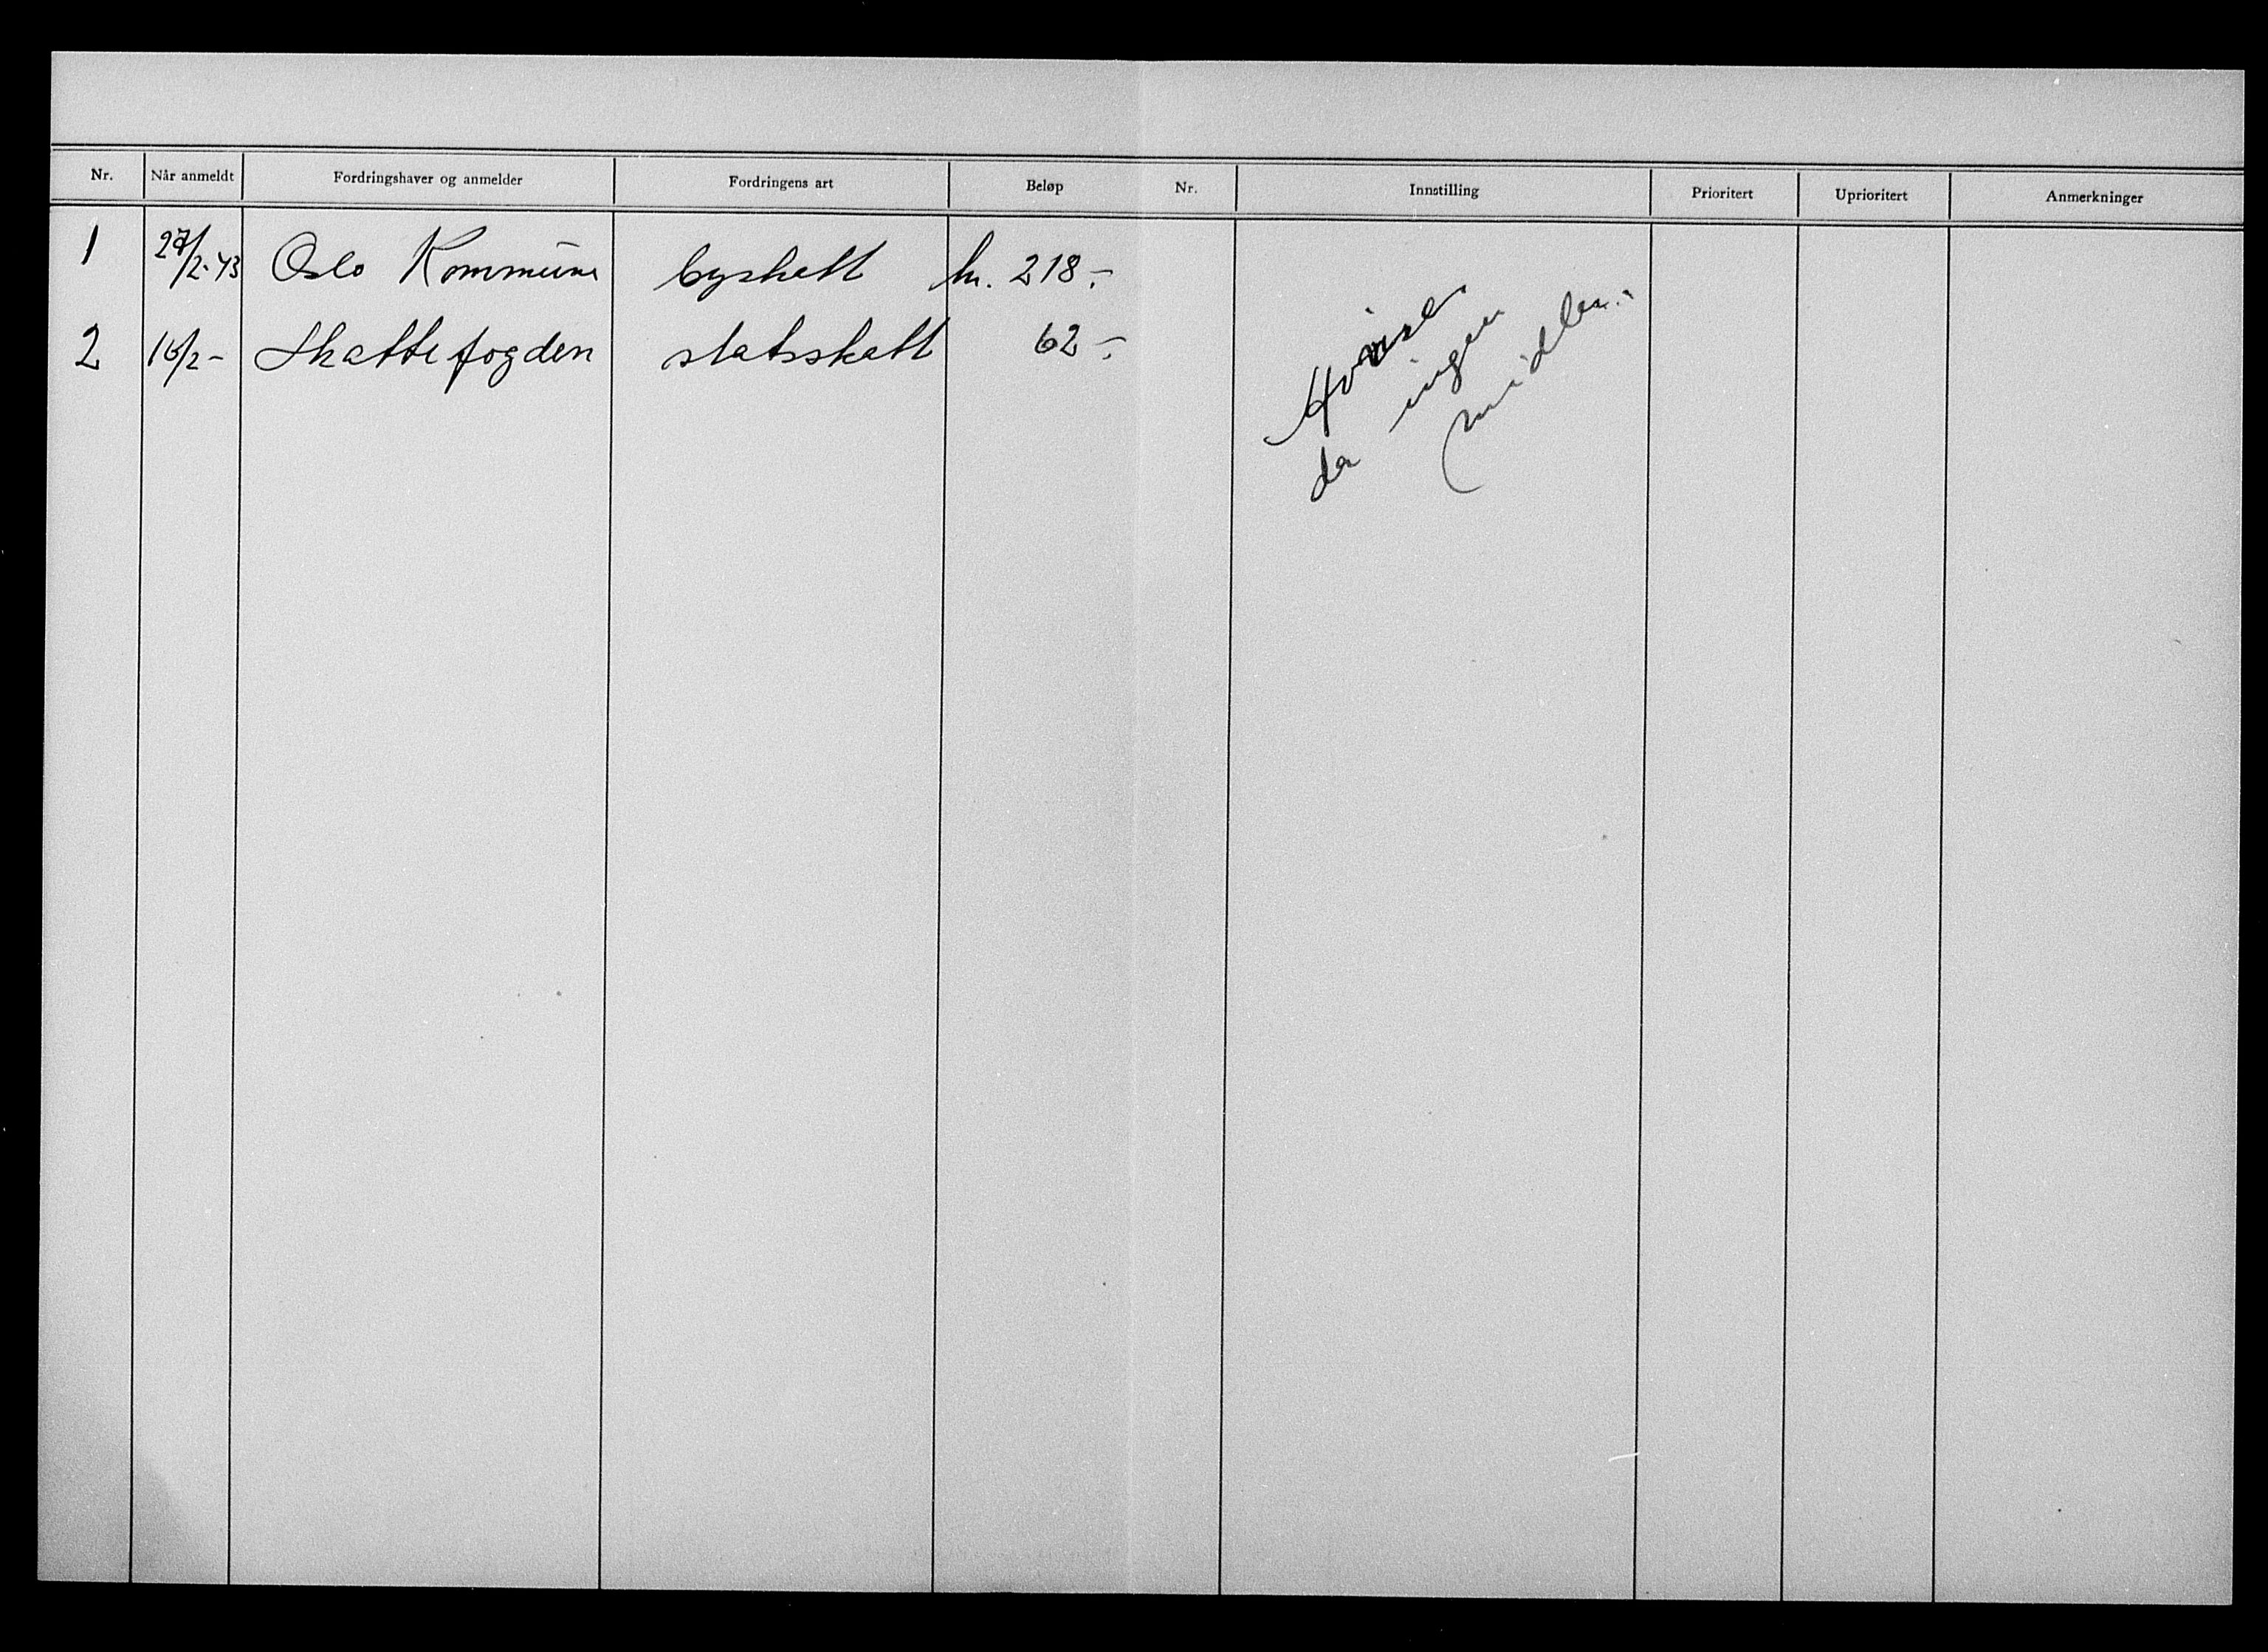 Nr. Når anmeldt Fordringshaver og anmelder Fordringens art Beløp Nr. Innstilling Prioritert Uprioritert Anmerkninger
1 27/2-43 Oslo Kommune byskatt kr. 218.-
2 16/2 - Skattefogden statsskatt 62.-
Avvises
da ingen
midler.-